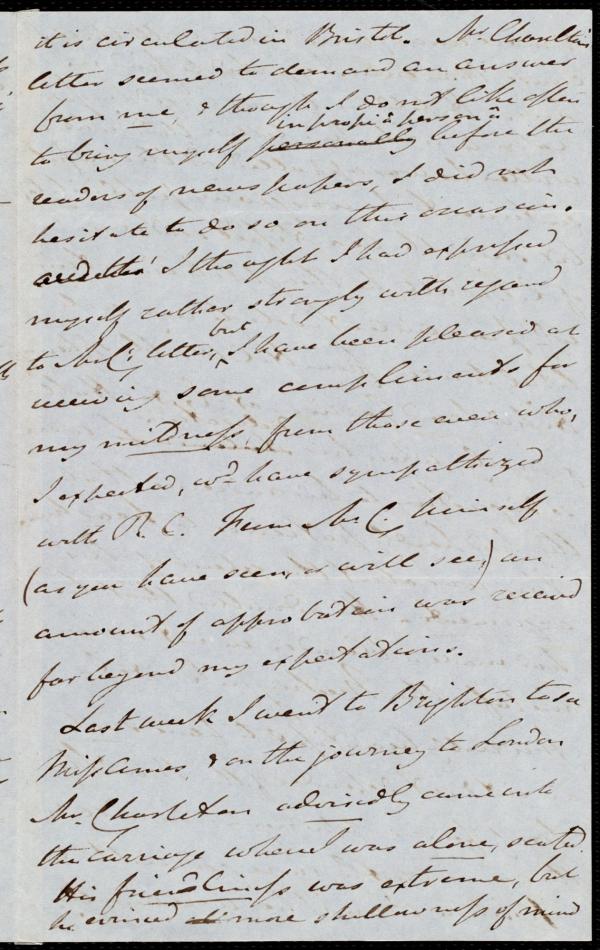 it is circulated in Bristol. Mr. Charlton's
letter seemed to demand an answer
from me, & though I do not like often
in propriâ personâ
to bring myself personally before the
readers of newspapers, I did not
hesitate to do so on this occasion.
I thought I had expressed
myself rather strongly with regard
to Mr. C's letter, but I have been pleased at
receiving some compliments for
my mildness, from those even who,
I expected, wd. have sympathized
with R. C. From Mr. C. himself
(as you have seen, or will see,) an
amount of approbation was received
far beyond my expectations.
Last week I went to Brighton to see
Miss Ames, & on the journey to London
Mr. Charleton advisedly came into
the carriage where I was alone, seated.
His friendliness was extreme, but
he evinced more shallowness of mind